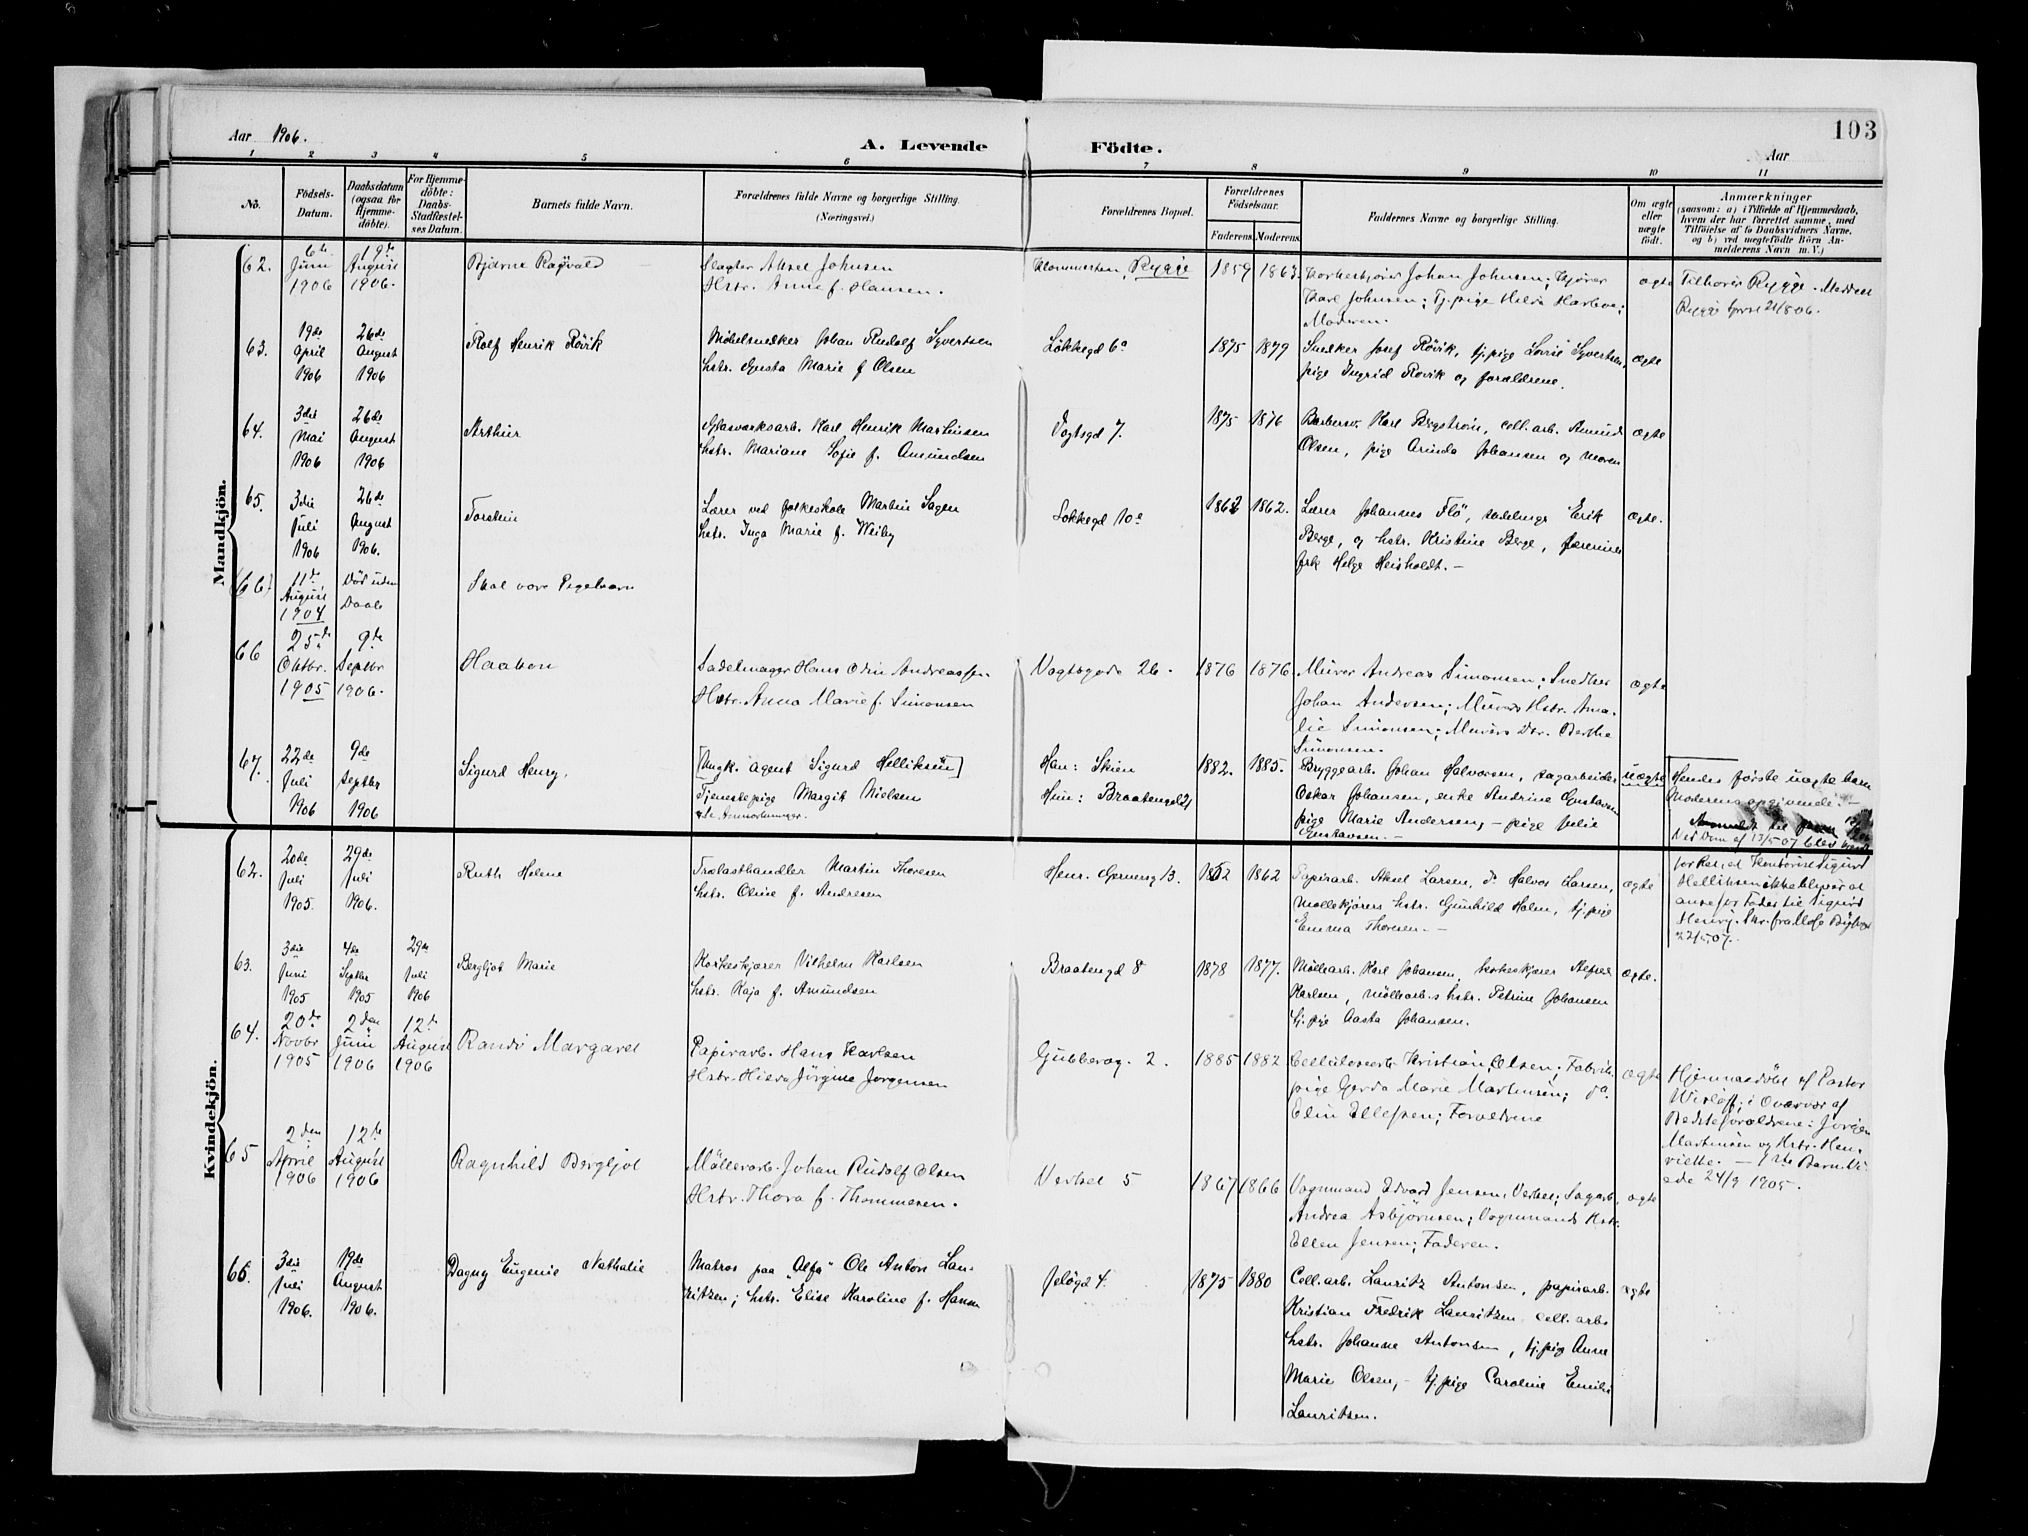 103
Aar 1906.
A. Levende Födte.
Aar
1 2 3 4 5 6 7 8 9 10 11
No.
Födsels-
Datum.
Daabsdatum
(ogsaa for
Hjemme-
döbte).
For Hjemme-
döbte:
Daabs-
Stadfæstel-
ses Datum.
Barnets fulde Navn.
Forældrenes fulde Navne og borgerlige Stilling.
(Næringsvei.)
Forældrenes Bopæl.
Forældrenes
Födselsaar.
Faderens. Moderens.
Faddernes Navne og borgerlige Stilling.
Om ægte
eller
uægte
födt.
Anmærkninger
(saasom: a) i Tilfælde af Hjemmedaab,
hvem der har forrettet samme, med
Tilföielse af to Daabsvidners Navne,
og b) ved uægtefödte Börn An-
melderens Navn m. V.)
Mandkjön.
62.
6te
Juni
1906
19de
August
1906.
Bjarne Ragvald
Slagter Aksel Johnsen
Hstr. Anne f. Hansen.
Rygge
1859 1863.
Johan Johnsen;
Karl Johnsen; Tj.pige Hilda
Moderen.
ægte
Tilhører Rygge.
63.
19de
April
1906
26de
August
1906
Rolf Henrik Rövik
Möbelsnedker Johan Rudolf Syvertsen
hstr. Gusta Marie f Olsen
Løkkegd 6a
1875 1879
Snedker Josef Rövik, tj.pige Lovise Syvertsen,
pige Ingrid Rövik og forældrene.
ægte
64.
3die
Mai
1906
26de
August
1906
Arthur
Glasværksarb. Karl Henrik Martinsen
hstr. Mariane Sofie f. Amundsen
Vogtsgd 7.
1875 1876
Barbersv. Karl Bergström, cell.arb. Amund
Olsen, pige Arinda Johansen og moren
ægte
65.
3die
Juli
1906
26de
August
1906.
Torstein
Lærer ved folkeskole Martin Sagen
hstr. Inga Marie f. Weiby
Løkkegd 10a
1862 1862.
Lærer Johannes Flö, Erik
Berge, og hstr. Kristine Berge,
frk Helga Heisholdt. –
ægte.
(66)
11te
August
1904
Död uden
Daab
Skal være Pigebarn
66
25de
Oktbr.
1905
9de
Septbr
1906.
Haakon
Sadelmager Hans Odin Andreassen
Hstr. Anna Marie f. Simonsen
Vogtsgade 26.
1876 1876.
Murer Andreas Simonsen; Snedker
Johan Andersen; Murers Hstr. Ama-
lie Simonsen; Murers Dtr. Berthe
Simonsen.
ægte
67.
22de
Juli
1906
9de
Septbr
1906
Sigurd Henry.
[Ungk. agent Sigurd Helliksen]
Tjenestepige Margit Nielsen
se Anmærkninger.
Han: Skien
Hun: Braatengd 21
1882. 1885.
Bryggearb. Johan Halvorsen, sagarbeider
Oskar Johansen, enke Andrine Gustavsen
pige Marie Andersen, – pige Julie
Gustavsen. –
uægte
Hendes første uægte barn
Moderens opgivende. –
Ved Dom af 13/5 07 blev
Kontorist Sigurd
Helliksen ikke bliver at
anse for Fader til Sigurd
Henry. Skr. fra Moss
22/5 07.
Kvindekjön.
62.
20de
Juli
1905.
29de
Juli
1906.
Ruth Helene
Trælasthandler Martin Thoresen
hstr. Oline f. Andresen
Henr. Gernersg 13.
1862
Papirarb. Aksel Larsen, do Halvor Larsen,
Møllekjørers hstr. Gunhild Holm, tj.pige
Emma Thoresen. –
ægte
63.
3die
Juni
1905
4de
Septbr
1905
29de
Juli
1906
Bergljot Marie
Korkeskjærer Vilhelm Karlsen
hstr. Kaja f. Amundsen
Braatengd 8
1878 1877.
Møllearb. Karl Johansen, korkeskjærer Alfred
Karlsen, møllearb.s hstr. Petrine Johansen
tj.pige Aasta Johansen.
ægte.
64.
20de
Novbr
1905
2den
Juni
1906
12te
August
1906
Randi Margaret
Papirarb. Hans Karlsen
Hstr. Hilda Jörgine Jörgensen
Gubberog. 2.
1885 1882
Cellulosearb Kristian Olsen; Fabrik-
pige Gerda Marie Martinsen; do.
Elin Ellefsen; Forældrene
ægte
Hjemmedöbt af Pastor
Wisløff; i Overvær af
Bedsteforældrene: Jörgen
Martinsen og Hstr. Hen-
riette. – 1ste Barn. Vi-
ede 24/9 1905.
65
2den
April
1906
12te
August
1906
Ragnhild Bergljot
Möllearb. Johan Rudolf Olsen
Hstr. Thora f. Thommesen.
Verket 5
1867 1866
Vognmand Edvard Jensen, Verket; Sagarb.
Andrea Asbjörnsen; Vognmands Hstr.
Ellen Jensen; Faderen.
ægte
66.
3die
Juli
1906.
19de
August
1906.
Dagny Eugenie Nathalie
Matros paa "Alfa" Ole Anton Lau-
ritzen; hstr. Elise Karoline f. Hansen
Jeløgd 4.
1875 1880
Cell.arb. Lauritz Antonsen, papirarb.
Kristian Fredrik Lauritzen cell.arbs
hstr. Johanne Antonsen, tj.pige Anne
Marie Olsen, – tj.pige Caroline Emilie
Lauritsen.
ægte